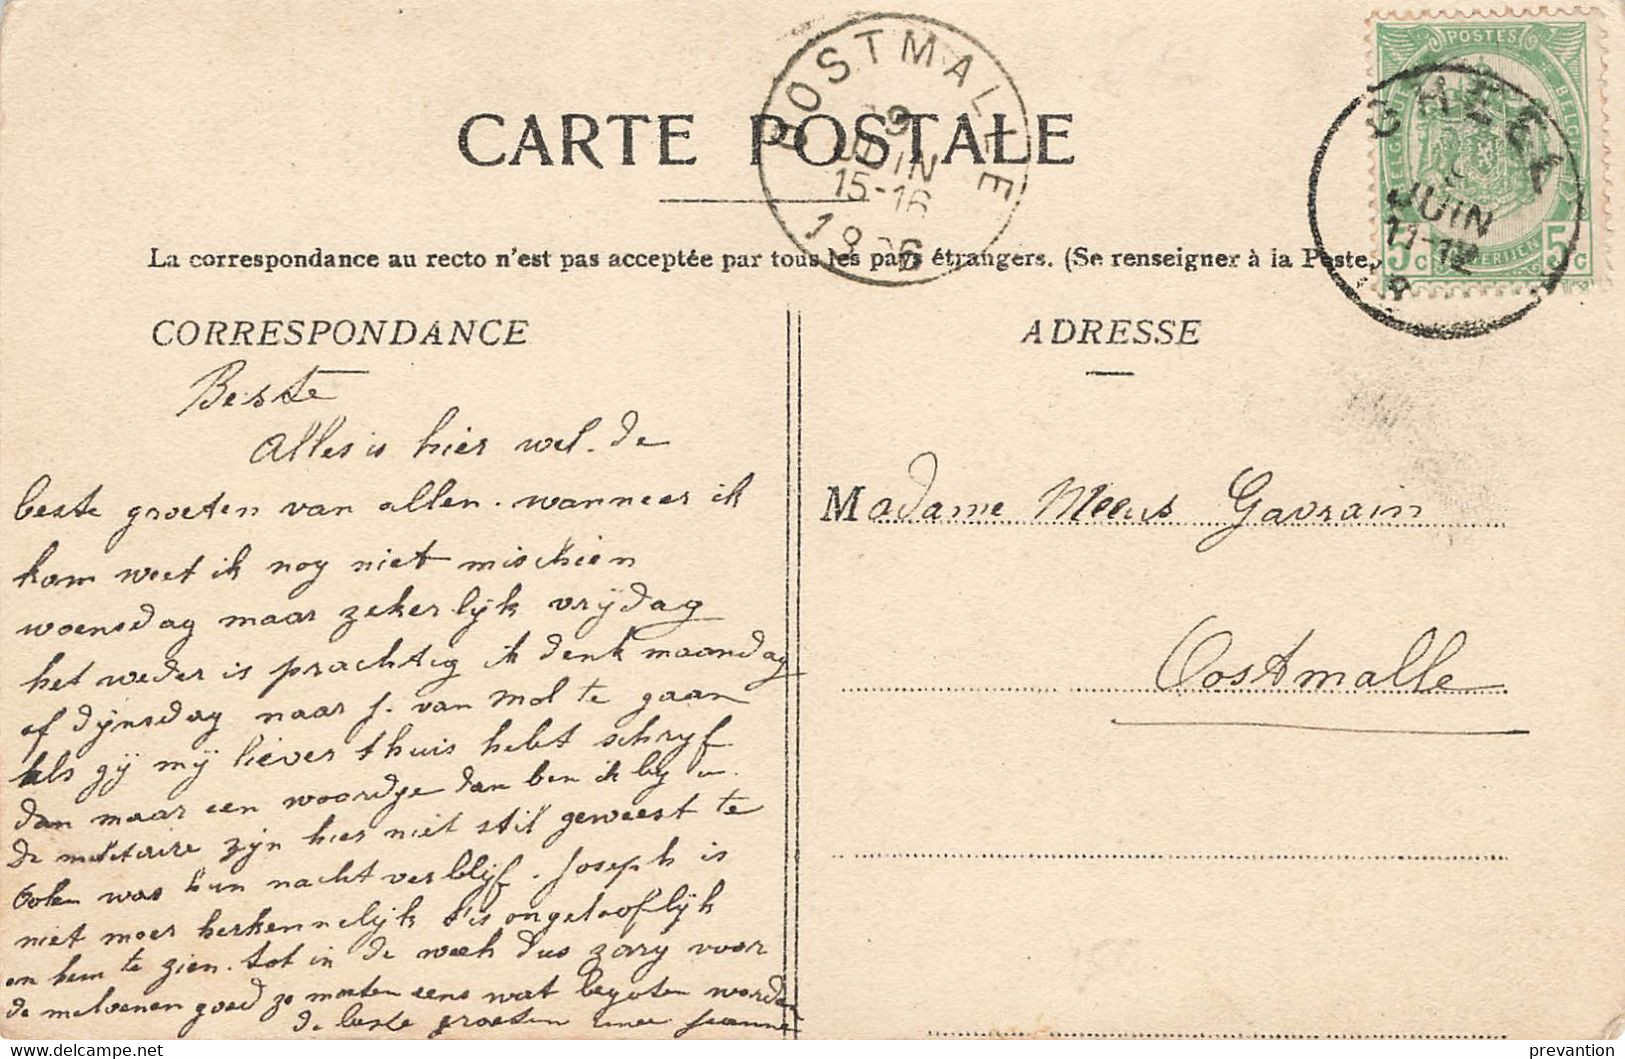 CARTE POSTALE
OOSTMALLE
9
JUIN
15-16
GHEEL
JUIN
11-12
POSTES
5c 5c
La correspondance au recto n'est pas acceptée par tous les pays étrangers. (Se renseigner à la Poste.
CORRESPONDANCE
ADRESSE
Beste
Alles is hier wel. de
beste groeten van allen. wanneer ik
kom weet ik nog niet mischien
woensdag maar zekerlijk vrijdag
het weder is prachtig ik denk maandag
of dijnsdag naar J. van Mol te gaan
Als gij mij liever thuis hebt schryf
dan maar een woordje dan ben ik by u.
De militaire zijn hier niet stil geweest te
Oolen was hun nacht verblijf. Joseph is
niet meer herkennelijk t'is ongelooflijk
om hem te zien. tot in de week dus zorg voor
de meloenen goed ze moeten eens wat begoten worden
de beste groeten Jeanne
Madame Meeus Gavrain
Oostmalle
delcampe.net
prevantion